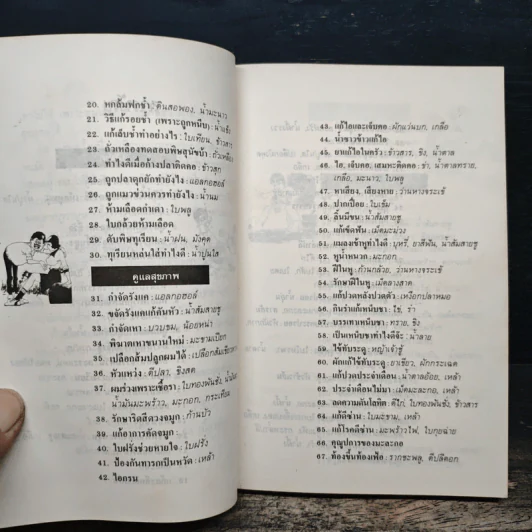 20. หกล้มฟกช้ำ : ดินสอพอง, น้ำมะนาว
21. วิธีแก้รอยช้ำ (เพราะถูกหนีบ) : น้ำแข็ง
22. แก้เล็บช้ำทำอย่างไร : ใบเทียน, ข้าวสาร
23. ถั่วเหลืองทดสอบพิษสุนัขบ้า : ถั่วเหลือง
24. ทำไงดีเมื่อก้างปลาติดคอ : ข้าวสุก
25. ถูกปลาดุกยักทำยังไง : แอลกอฮอล์
26. ถูกแมวข่วนควรทำยังไง : น้ำนม
27. ห้ามเลือดกำเดา : ใบพลู
28. ใบกล้วยห้ามเลือด
29. ดับพิษทุเรียน : น้ำฝน, มังคุด
30. ทุเรียนหล่นใส่ทำไงดี : น้ำปูนใส
ดูแลสุขภาพ
31. กำจัดรังแค : แอลกอฮอล์
32. ขจัดรังแคแก้คันหัว : น้ำส้มสายชู
33. กำจัดเหา : บวบขม, น้อยหน่า
34. พิฆาตเหาขนานใหม่ : มะขามเปียก
35. เปลือกส้มปลูกผมได้ : เปลือกส้ม
36. หัวแหว่ง : ดีปลา, ขิงสด
37. ผมร่วงเพราะเชื้อรา : ใบทองพันชั่ง,
น้ำมันมะพร้าว, มะกอก, กระเทียม
38. รักษาริดสีดวงจมูก : ก้านบัว
39. แก้อาการคัดจมูก
40. ใบฝรั่งช่วยหายใจ : ใบฝรั่ง
41. ป้องกันทารกเป็นหวัด : เหล้า
42. ไอกรน
43. แก้ไอและเจ็บคอ : ผักแว่นบก, เกลือ
44. น้ำซาวข้าวแก้ไอ
45. ยาแก้ไอในครัว : ข้าวสาร, ขิง, น้ำตาล
46. ไอ, เจ็บคอ, เสมหะติดคอ : ชา, น้ำตาลทราย,
เกลือ, มะนาว, ใบพลู
47. หาเสียง, เสียงหาย : ว่านหางจระเข้
48. ปากเปื่อย : ใบเข็ม
49. ลิ้นมีขน : น้ำส้มสายชู
50. แก้เข็ดฟัน : เม็ดมะม่วง
51. แมลงเข้าหูทำไงดี : บุหรี่, ยาสีฟัน, น้ำส้มสายชู
52. หูน้ำหนวก : มะกอก
53. ฝีในหู : ก้านกล้วย, ว่านหางจระเข้
54. รักษาฝีในหู : เม็ดลางสาด
55. แก้ปวดหลังปวดตัว : เหงือกปลาหมอ
56. กินรำแก้เหน็บชา : ไข่, รำ
57. บรรเทาเหน็บชา : ทราย, ขิง
58. เป็นเหน็บชาทำไงดีจ๊ะ : น้ำลาย
59. ไข้ทับระดู : หญ้าเจ้าชู้
60. ผักแก้ไข้ทับระดู : ยาเขียว, ผักกระเฉด
61. แก้ปวดประจำเดือน : น้ำตาลอ้อย, เหล้า
62. ประจำเดือนไม่มา : เม็ดมะละกอ, เหล้า
63. ลดความดันโลหิต : ดีไก่, ใบทองพันชั่ง, ข้าวสาร
64. แก้ดีซ่าน : ใบมะขาม, เหล้า
65. แก้โรคดีซ่าน : มะพร้าวไฟ, ใบกุยฉ่าย
66. คุณูปการของมะละกอ
67. ท้องขึ้นท้องเฟ้อ : รากชะพลู, ดีปลีดอก